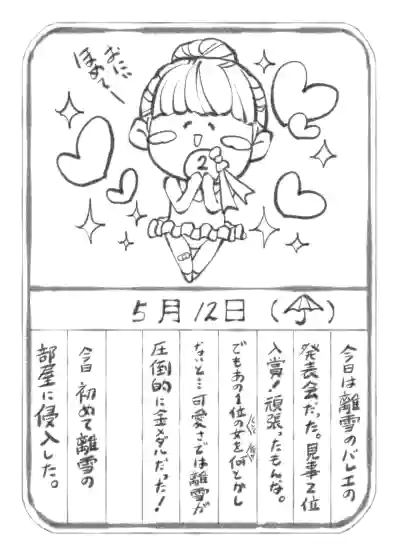 おにぃ
ほめてー
2
5月12日（　）
今日は離雪のバレエの
発表会だった。見事2位
入賞！頑張ったもんな。
でもあの1位の女を何とかし
ないと…可愛さでは離雪が
圧倒的に金メダルだった！
今日 初めて離雪の
部屋に侵入した。